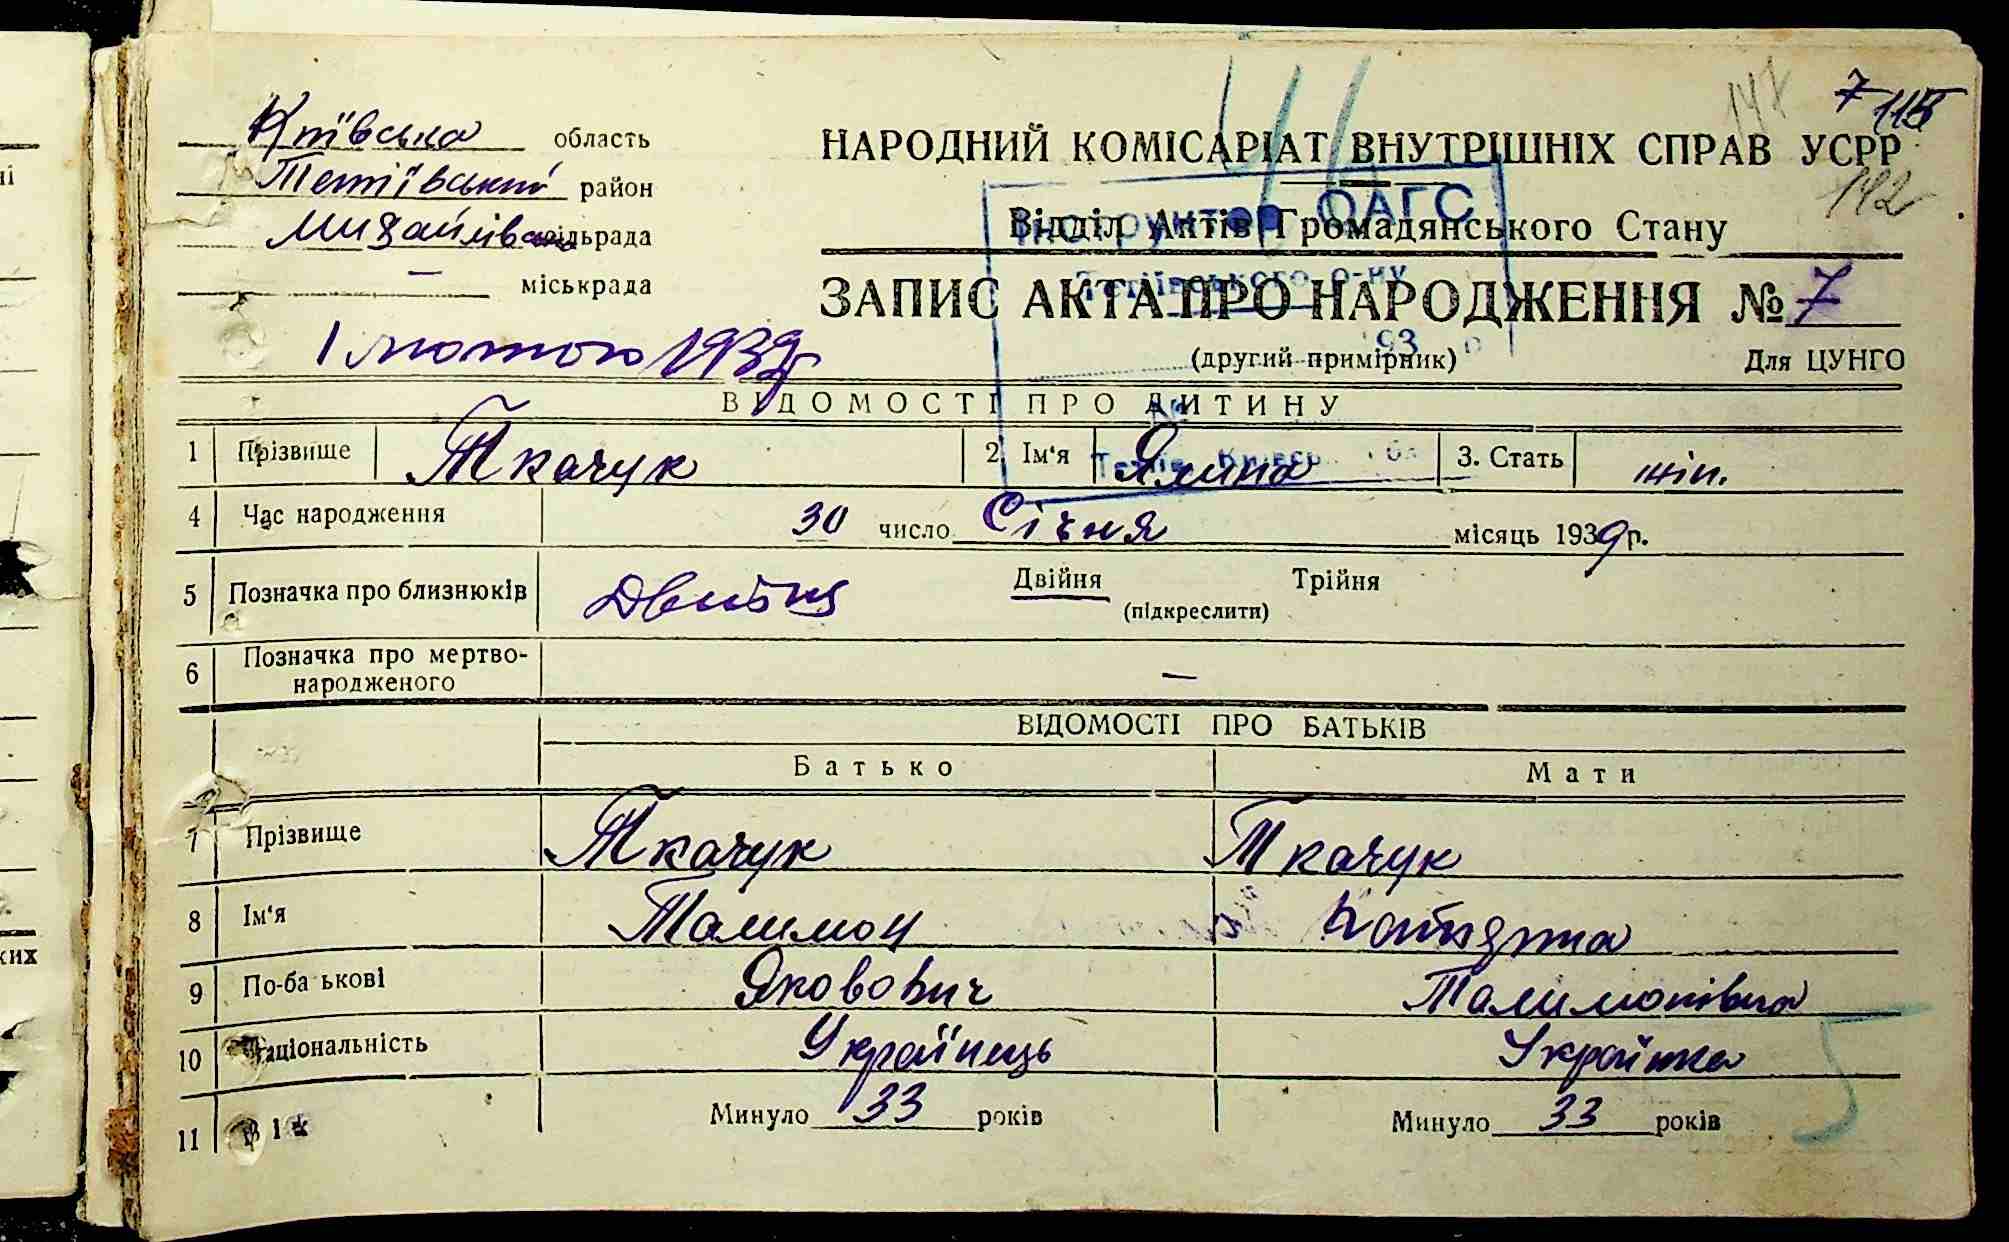 7 115
147
Київська область
НАРОДНИЙ КОМІСАРІАТ ВНУТРІШНІХ СПРАВ УСРР
Тетіївський район
142
Михайлівська сільрада
Відділ Актів Громадянського Стану
— міськрада
ЗАПИС АКТА ПРО НАРОДЖЕННЯ № 7
1 лютого 1939 р
(другий примірник) Для ЦУНГО
ВІДОМОСТІ ПРО ДИТИНУ
1 Прізвище Ткачук 2. Ім'я Ялина 3. Стать жін.
4 Час народження 30 число Січня місяць 1939 р.
5 Позначка про близнюків Двійня Двійня Трійня
(підкреслити)
6 Позначка про мертво-
народженого —
ВІДОМОСТІ ПРО БАТЬКІВ
Батько Мати
7 Прізвище Ткачук Ткачук
8 Ім'я Талимон Катерина
9 По-ба ькові Якович Талимонівна
10 Національність Українець Українка
11 Вік Минуло 33 років Минуло 33 років
ОАГС